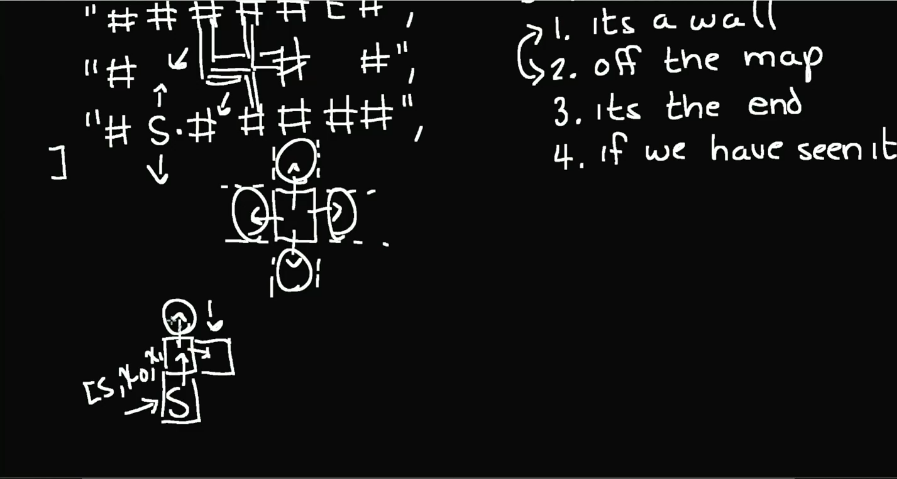 "# # # # # E #",
1. its a wall
"# # #",
2. off the map
"# S.# # # # #",
3. its the end
]
4. if we have seen it
[S, x0, x1
S